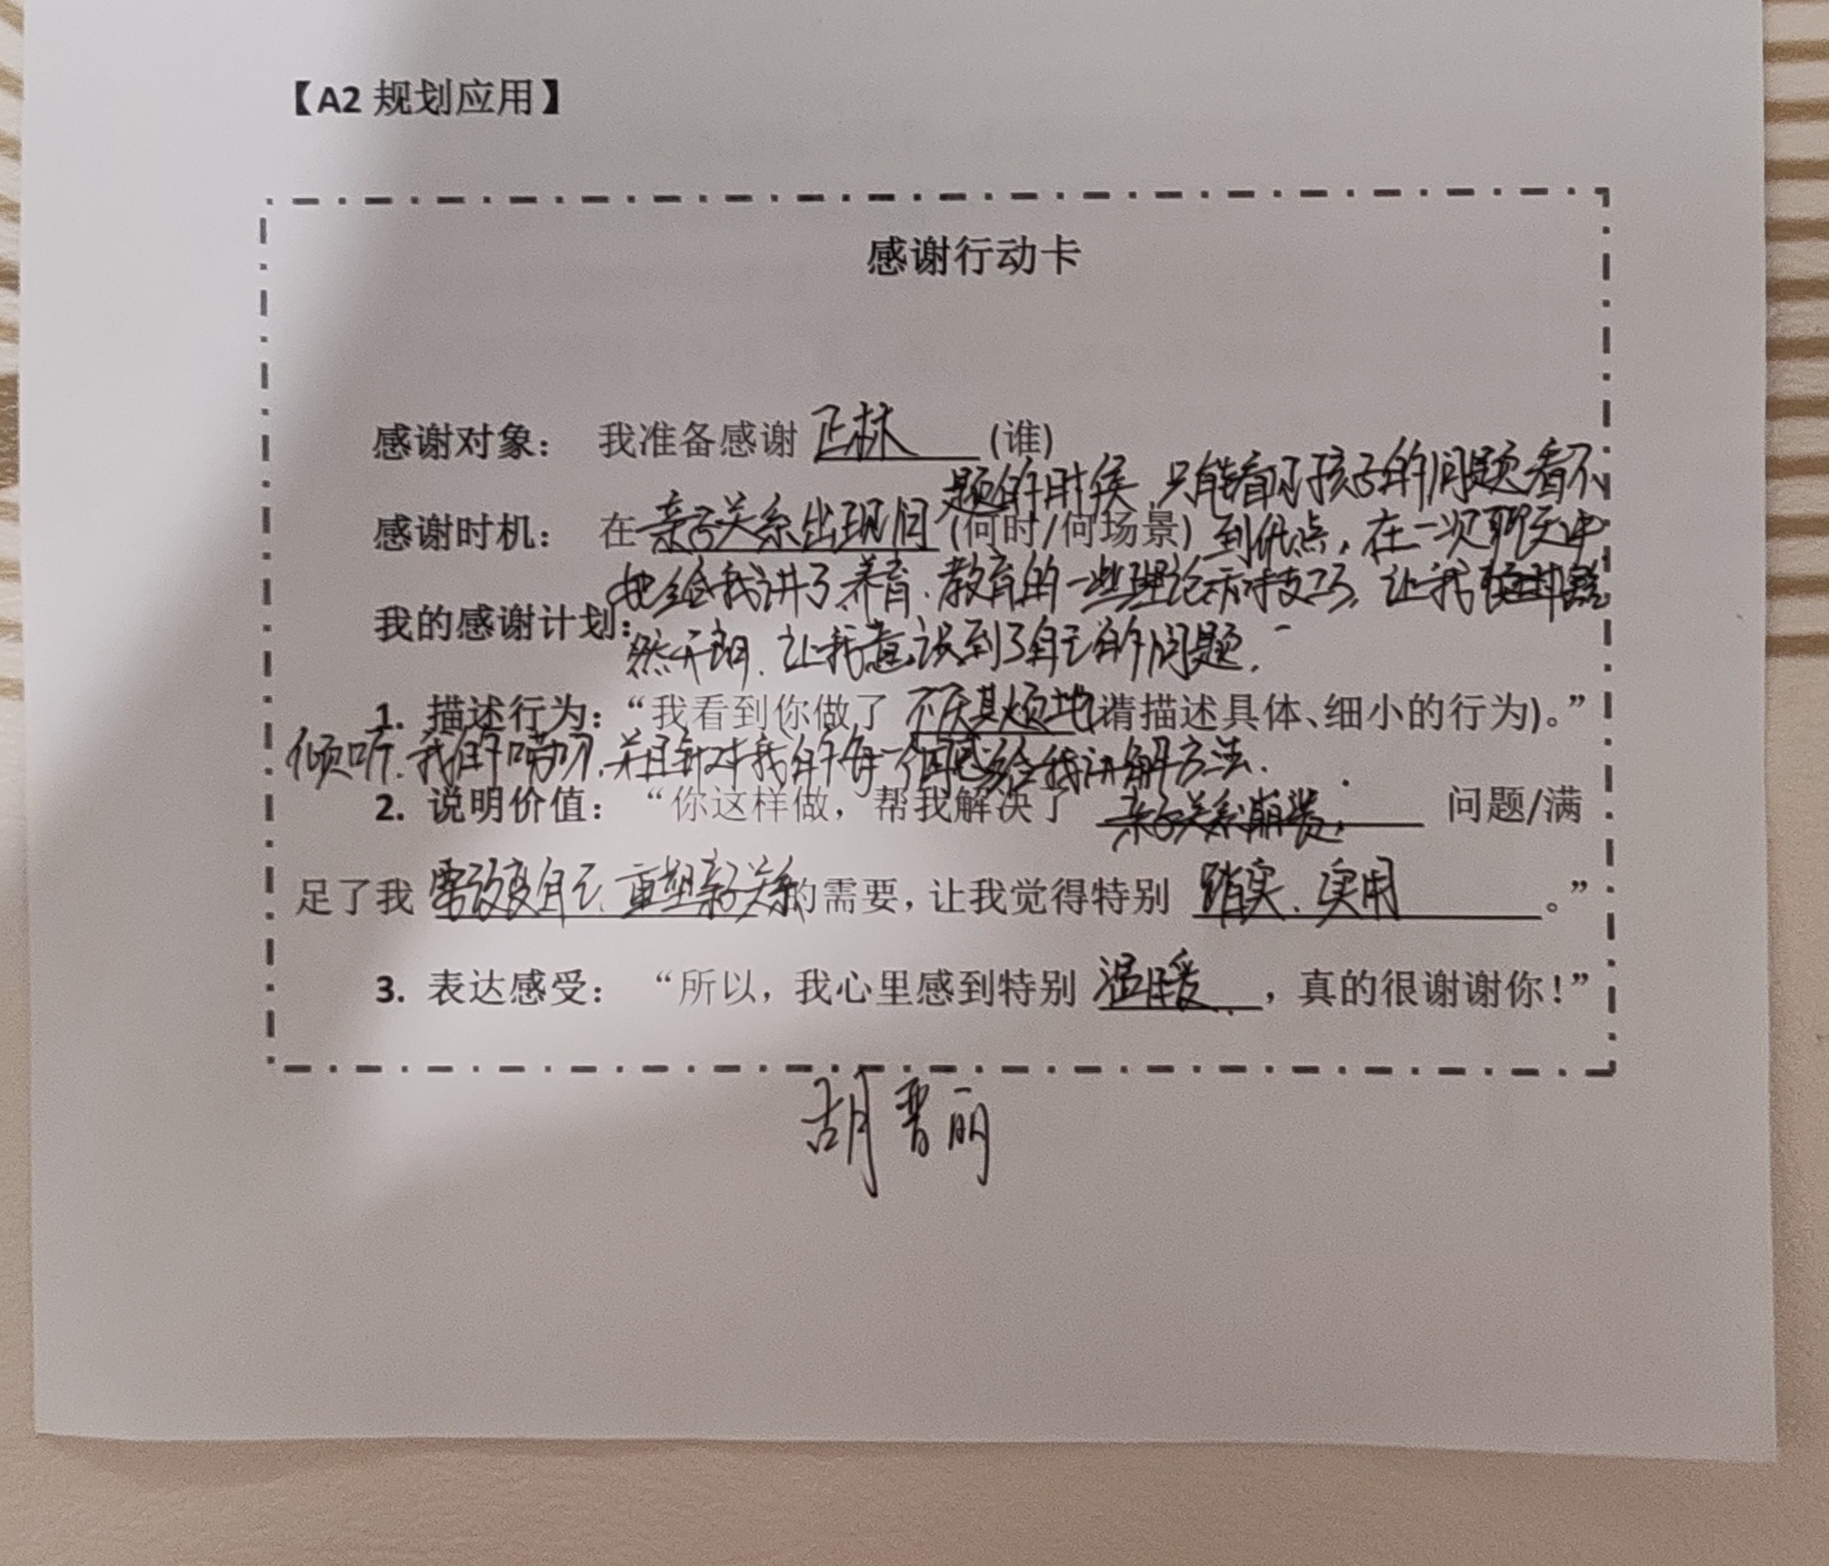 【A2 规划应用】
感谢行动卡
感谢对象： 我准备感谢 正林 (谁)
题的时候，只能看到孩子的问题看不
感谢时机： 在 亲子关系出现问 (何时/何场景) 到优点，在一次聊天中
她给我讲了养育、教育的一些理论和技巧，让我
我的感谢计划：
然开朗，让我意识到了自己的问题.
1. 描述行为：“我看到你做了 不厌其烦地 (请描述具体、细小的行为)。”
倾听.我的唠叨，并且针对我的每一个困惑给我讲解方法.
2. 说明价值： “你这样做，帮我解决了 亲子关系崩裂， 问题/满
足了我 需改变自己，重塑亲子关系 的需要，让我觉得特别 踏实、实用 。”
3. 表达感受： “所以，我心里感到特别 温暖 ，真的很谢谢你！”
胡晋丽